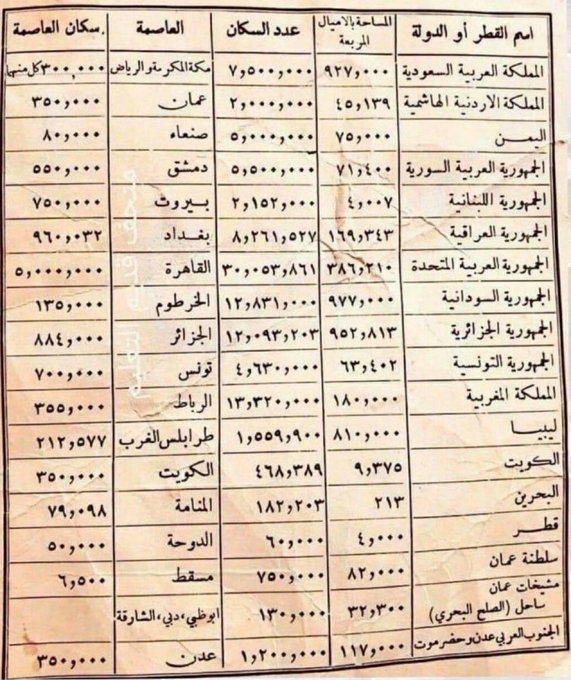 اسم القطر أو الدولة | المساحة بالاميال المربعة | عدد السكان | العاصمة | سكان العاصمة
المملكة العربية السعودية | ٩٢٧,٠٠٠ | ٧,٥٠٠,٠٠٠ | مكة المكرمة والرياض | ٣٠٠,٠٠٠ كل منهما
المملكة الاردنية الهاشمية | ٤٥,١٣٩ | ٢,٠٠٠,٠٠٠ | عمان | ٣٥٠,٠٠٠
اليمن | ٧٥,٠٠٠ | ٥,٠٠٠,٠٠٠ | صنعاء | ٨٠,٠٠٠
الجمهورية العربية السورية | ٧١,٤٠٠ | ٥,٥٠٠,٠٠٠ | دمشق | ٥٥٠,٠٠٠
الجمهورية اللبنانية | ٤,٠٠٧ | ٢,١٥٢,٠٠٠ | بيروت | ٧٥٠,٠٠٠
الجمهورية العراقية | ١٦٩,٣٤٣ | ٨,٢٦١,٥٢٧ | بغداد | ٩٦٠,٠٣٢
الجمهورية العربية المتحدة | ٣٨٦,٢١٠ | ٣٠,٠٥٣,٨٦١ | القاهرة | ٥,٠٠٠,٠٠٠
الجمهورية السودانية | ٩٧٧,٠٠٠ | ١٢,٨٣١,٠٠٠ | الخرطوم | ١٣٥,٠٠٠
الجمهورية الجزائرية | ٩٥٢,٨١٣ | ١٢,٠٩٣,٢٠٣ | الجزائر | ٨٨٤,٠٠٠
الجمهورية التونسية | ٦٣,٤٠٢ | ٤,٦٣٠,٠٠٠ | تونس | ٧٠٠,٠٠٠
المملكة المغربية | ١٨٠,٠٠٠ | ١٣,٣٢٠,٠٠٠ | الرباط | ٣٥٥,٠٠٠
ليبيا | ٨١٠,٠٠٠ | ١,٥٥٩,٩٠٠ | طرابلس الغرب | ٢١٢,٥٧٧
الكويت | ٩,٣٧٥ | ٤٦٨,٣٨٩ | الكويت | ٣٥٠,٠٠٠
البحرين | ٢١٣ | ١٨٢,٢٠٣ | المنامة | ٧٩,٠٩٨
قطر | ٤,٠٠٠ | ٦٠,٠٠٠ | الدوحة | ٥٠,٠٠٠
سلطنة عمان | ٨٢,٠٠٠ | ٧٥٠,٠٠٠ | مسقط | ٦,٥٠٠
مشيخات عمان
ساحل (الصلح البحري) | ٣٢,٣٠٠ | ١٣٠,٠٠٠ | ابوظبي، دبي، الشارقة
الجنوب العربي عدن وحضرموت | ١١٧,٠٠٠ | ١,٢٠٠,٠٠٠ | عدن | ٣٥٠,٠٠٠
متحف قديم التعليم